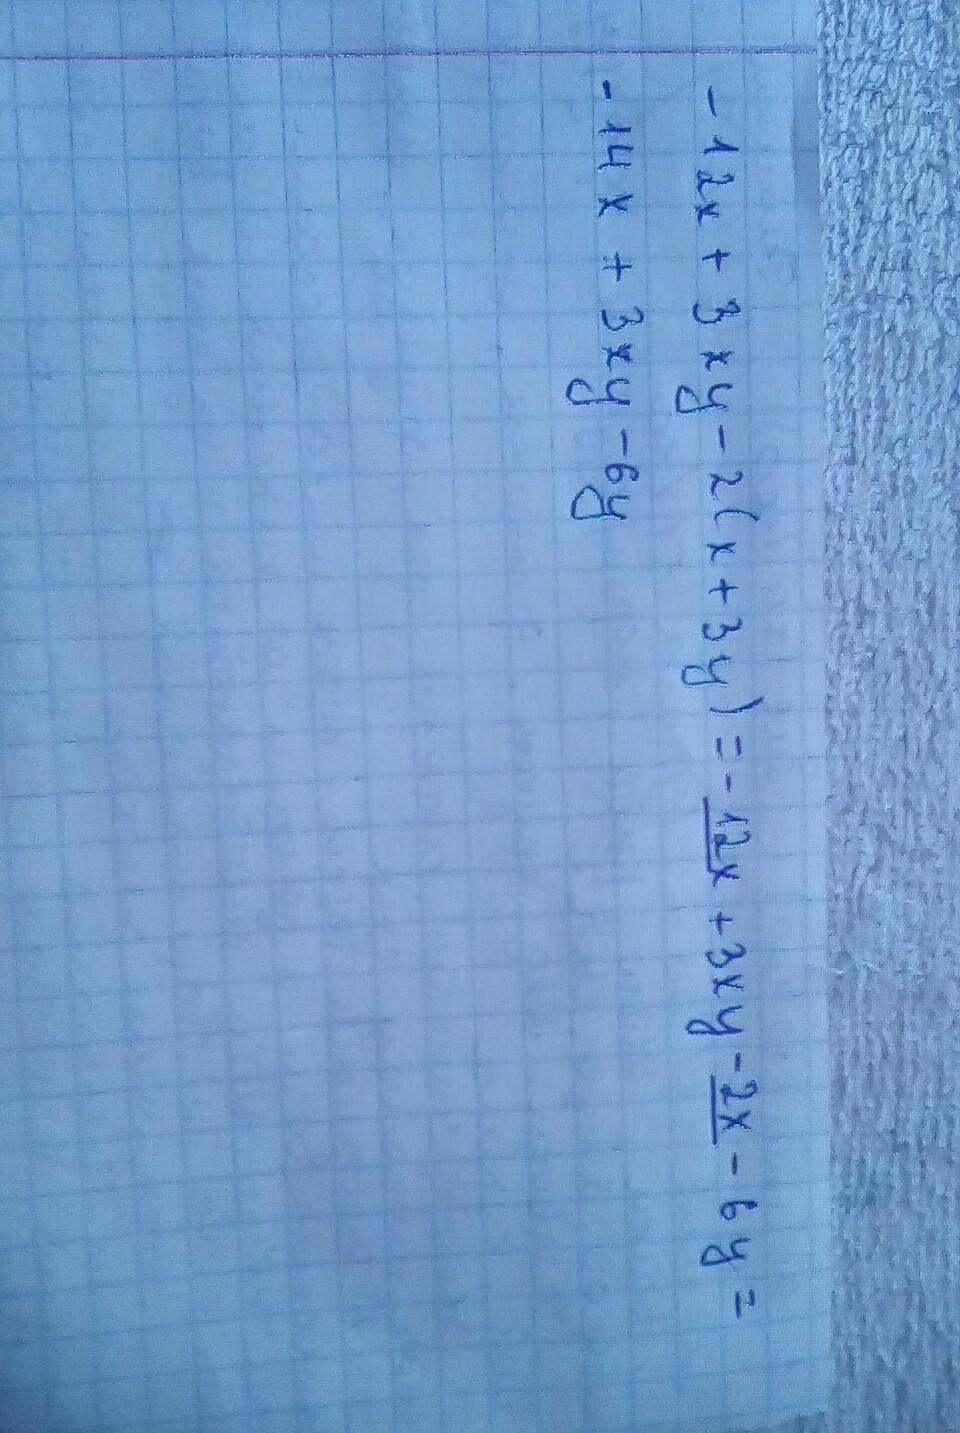 - 12x + 3xy - 2(x + 3y) = - 12x + 3xy - 2x - 6y =
- 14x + 3xy - 6y